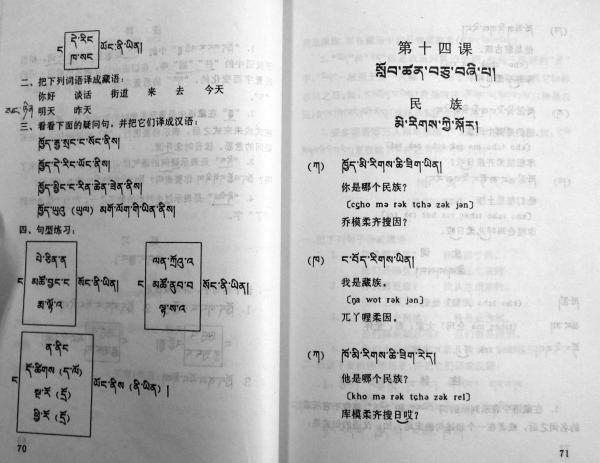 ང དེ་རིང ཡོང་ནི་ཡིན།
ཁ་སང
二、把下列词语译成藏语：
你好 谈话 街道 来 去 今天
明天 昨天
三、看看下面的疑问句，并把它们译成汉语：
ཁྱོད་རྒྱ་སྲང་ང་སོང་ནིས།
ཁྱོད་དེ་རིང་ཡོང་ནིས།
ཁྱོད་གྲིང་ང་རིན་ཆེན་ཟེན་ནིས།
ཁྱོད་ཡུའུ (ཡུལ) མགོ་ལོག་གི་ཡིན་ནིས།
四、句型练习：
ང པེ་ཅིན་ན སོང་ནི་ཡིན།
མཚོ་བྱང་ང
མ་ལྷོ་འ
ལན་ཀྲོའུ་འ
ང མཚོ་ནུབ་བ སོང་ནི་ཡིན།
ལྷ་ས་འ
ན་ནིང
ང ད་ཚིགས (ད་ལོ) ཡོང་ནིས (ནི་ཡིན) །
སྔ་རོ (དྲོ)
ཕྱི་རོ (དྲོ)
70
第十四课
སློབ་ཚན་བཅུ་བཞི་པ།
民族
མི་རིགས་ཀྱི་སྐོར།
(ཀ) ཁྱོད་མི་རིགས་ཆི་ཟིག་ཡིན།
你是哪个民族？
〔cçho mə rək tɕhə zək jən〕
乔模柔齐搜因？
(ཁ) ང་བོད་རིགས་ཡིན།
我是藏族。
〔ŋa wot rək jən〕
兀丫喔柔因。
(ཀ) ཁོ་མི་རིགས་ཆི་ཟིག་རེད།
他是哪个民族？
〔kho mə rək tɕhə zək rel〕
库模柔齐搜日哎？
71